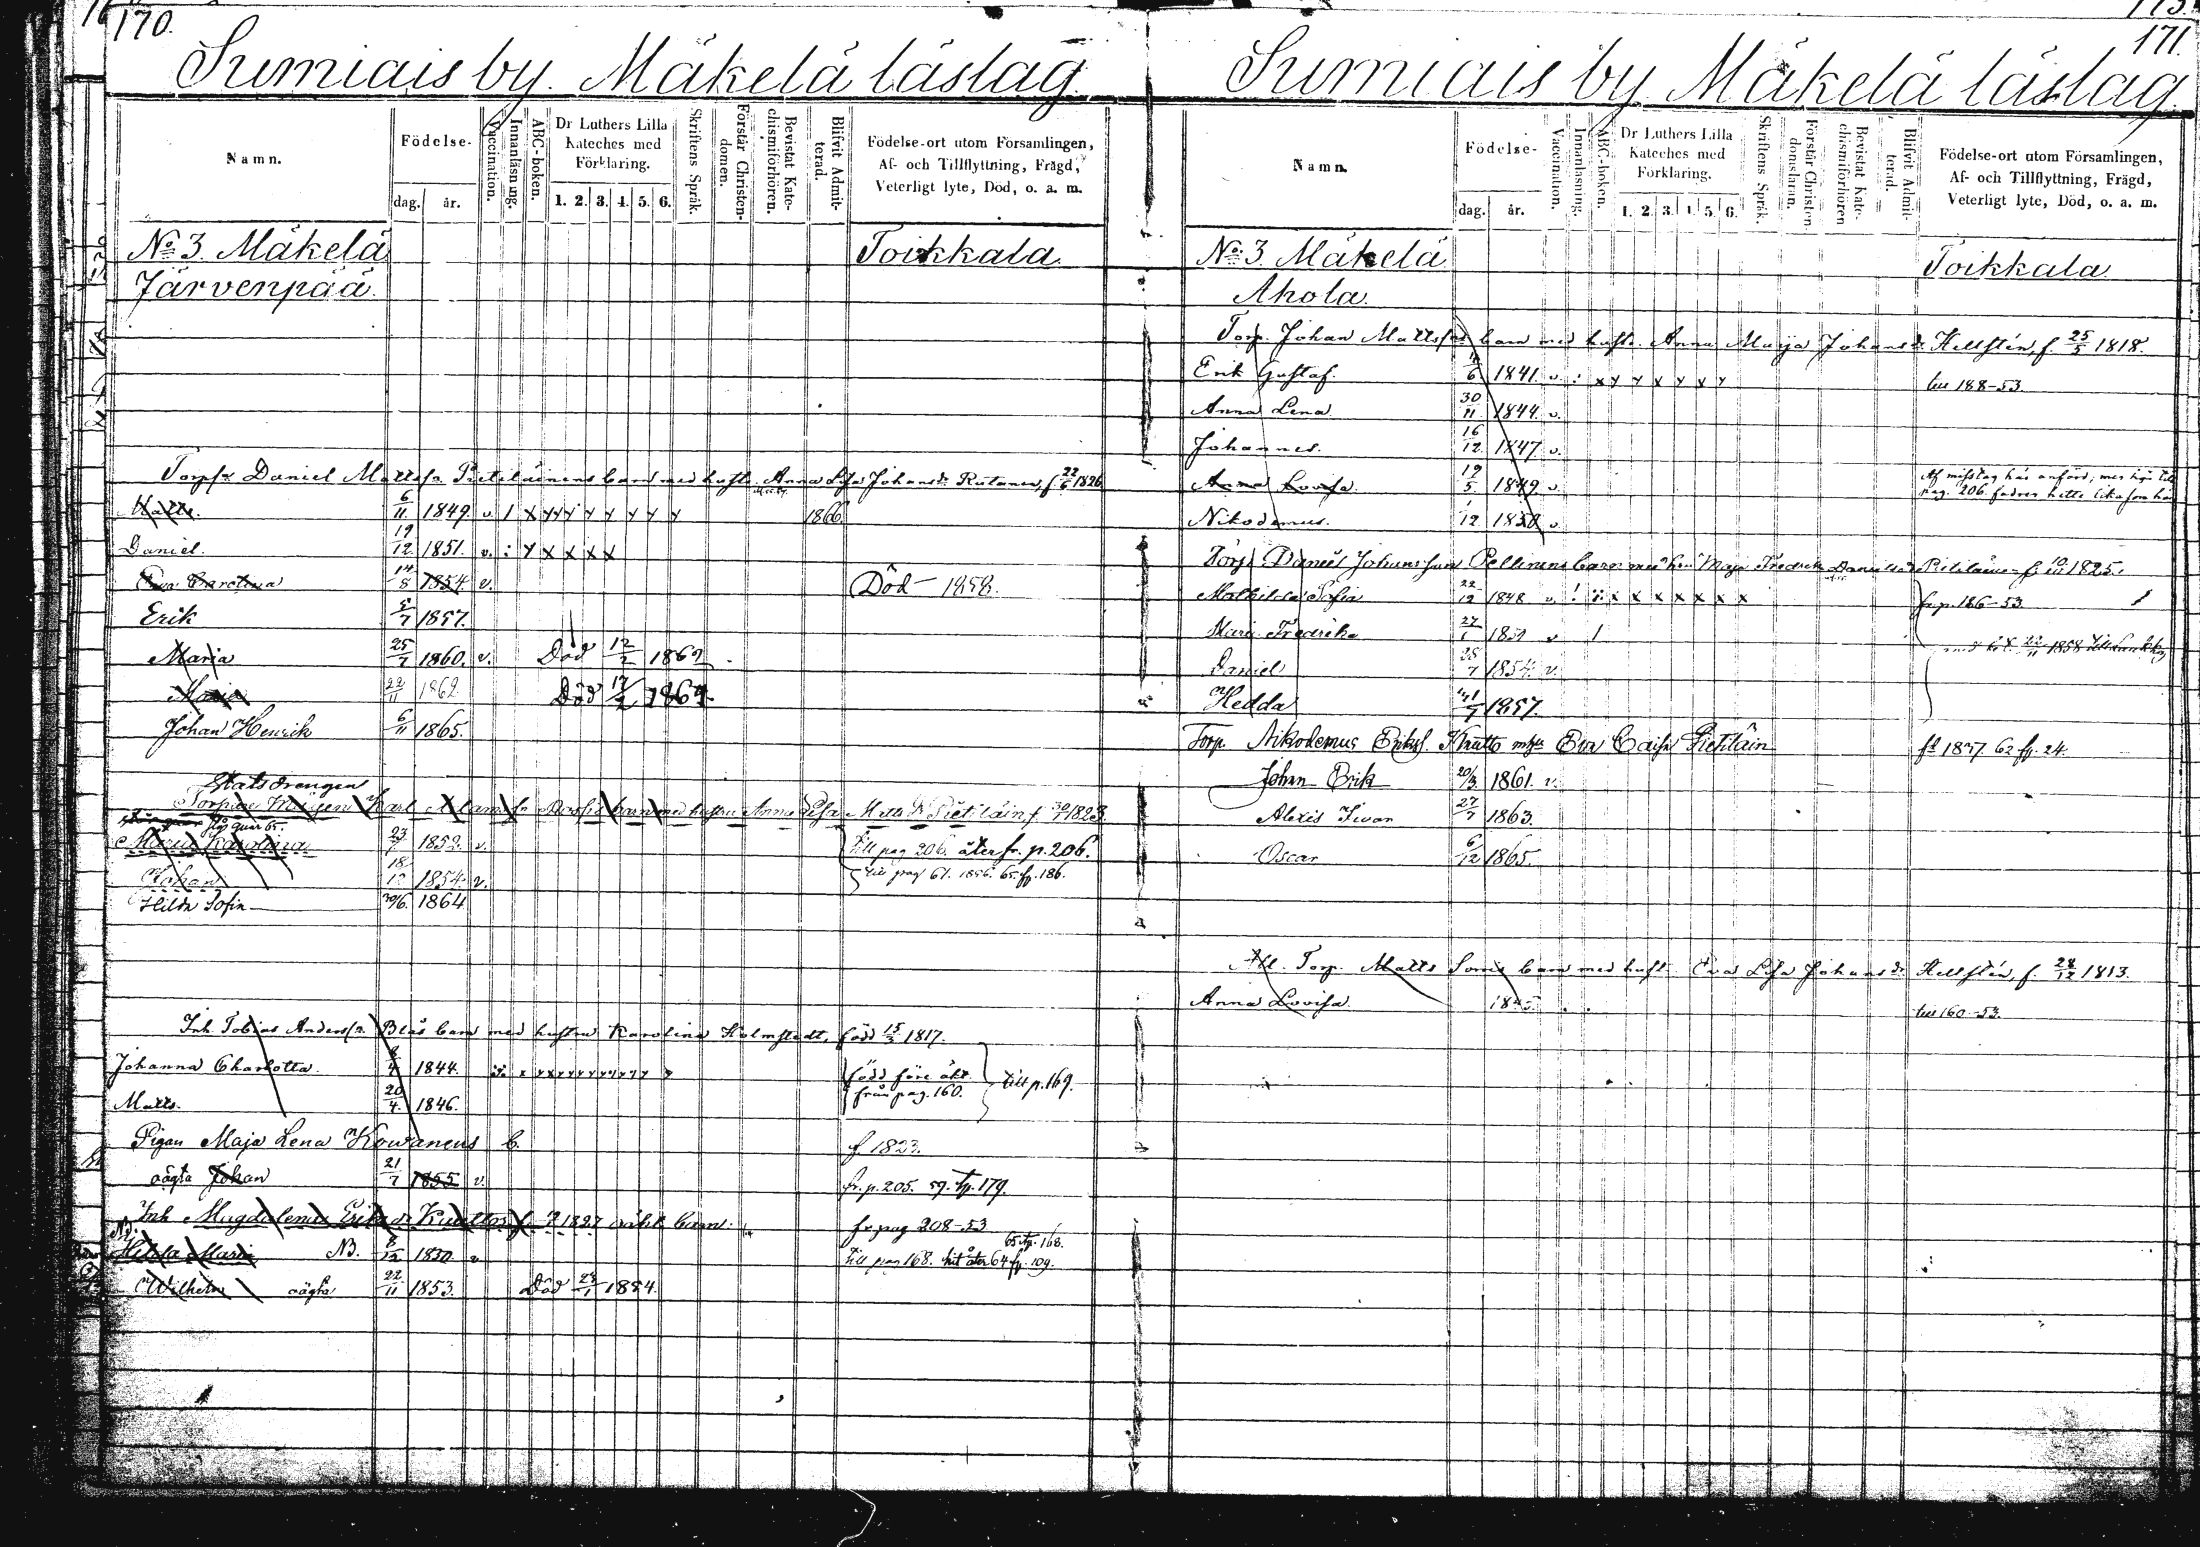 170.
Sumiais by. Mäkelä läslag
Namn.
Födelse-
dag.
år.
Vaccination.
Innanläsning.
ABC-boken.
Dr Luthers Lilla
Kateches med
Förklaring.
1. 2. 3. 4. 5. 6.
Skriftens Språk.
Förstår Christen-
domen.
Bevistat Kate-
chismiförhören.
Blifvit Admit-
terad.
Födelse-ort utom Församlingen,
Af- och Tillflyttning, Frägd,
Veterligt lyte, Död, o. a. m.
No 3. Mäkelä Toikkala.
Järvenpää.
Torpr Daniel Mattsfn Pietiläinens barn med hustr. Anna Lisa Johansdr Rutanen, f. 22/6 1826
Matts. 6/11 1849 v 1866
Daniel. 19/12 1851. v.
Eva Carolina 14/8 1854 v. Död 1858.
Erik 5/7 1857.
Maria 25/7 1860. v. Död 12/2 1862.
Maria 22/11 1862. Död 17/2 1864.
Johan Henrik 6/11 1865.
Statsdrengen
Karl Adamsfn barn med hustru Anna Lisa Mattsdr Pietiläin f. 30/7 1823.
Maria Karolina 23/7 1852. v. Till pag 206. åter fr. p. 206.
Johan 18/12 1854. v. till pag 61. 1856. 65 fp. 186.
Hilda Sofia 30/6. 1864
Inh. Tobias Andersfn Blås barn med hustru Karolina Holmstedt, född 15/3 1817.
Johanna Charlotta. 8/4 1844. född före äkt.
Matts. 20/4. 1846. från pag. 160. till p. 169.
Pigan Maja Lena Kowanens b. f 1823.
oägta Johan 21/7 1855 v. fr. p. 205. 59. tp. 179.
Inh Magdalena Eriksdr Kuttos f. 1827 oäkt. barn: fr pag 208-53
65 tp. 168.
Hilda Maria NB. 8/12 1850 v Till pag 168. hit åter 64 fp. 109.
Wilhelm oägta 22/11 1853. Död 23/1 1854.
171.
Sumiais by. Mäkelä läslag
Namn.
Födelse-
dag.
år.
Vaccination.
Innanläsning.
ABC-boken.
Dr Luthers Lilla
Kateches med
Förklaring.
1. 2. 3. 4. 5. 6.
Skriftens Språk.
Förstår Christen-
domsläran.
Bevistat Kate-
chismiförhören
Blifvit Admit-
terad.
Födelse-ort utom Församlingen,
Af- och Tillflyttning, Frägd,
Veterligt lyte, Död, o. a. m.
No 3. Mäkelä Toikkala.
Ahola.
Torp. Johan Mattsfns barn med hustr. Anna Maija Johansdr Hellstén, f. 25/5 1818.
Erik Gustaf. 1841. v. till 188-53.
Anna Lena. 30/11 1844. v.
Johannes. 16/12 1847 v.
Anna Lovisa. 19/5 1849 v. Af misstag här anförd; mer hör till
pag. 206. fadren hette lika som här
Nikodemus. 1/12 1850 v.
Torp. Daniel Johansson Pellinens barn med hu. Maja Fredrika Danielsdr Pietiläin f. 10/10 1825.
Mathilda Sofia 22/12 1848 v. fr p. 186-53.
Maria Fredrika 27/1 v 22/11 1858
Daniel 28/7 1854. v.
Hedda 1857.
Torp. Nikodemus Eriksf. Krutto m. h. Eva Caisa Pietiläin fd 1837. 62 fp. 24.
Johan Erik 20/3 1861. v.
Alexis Iwar 27/7 1863.
Oscar 6/12 1865.
Afl. Torp. Matts Sonis barn med hust. Eva Lisa Johansdr Hellstén, f. 28/12 1813.
Anna Lovisa till 160-53.